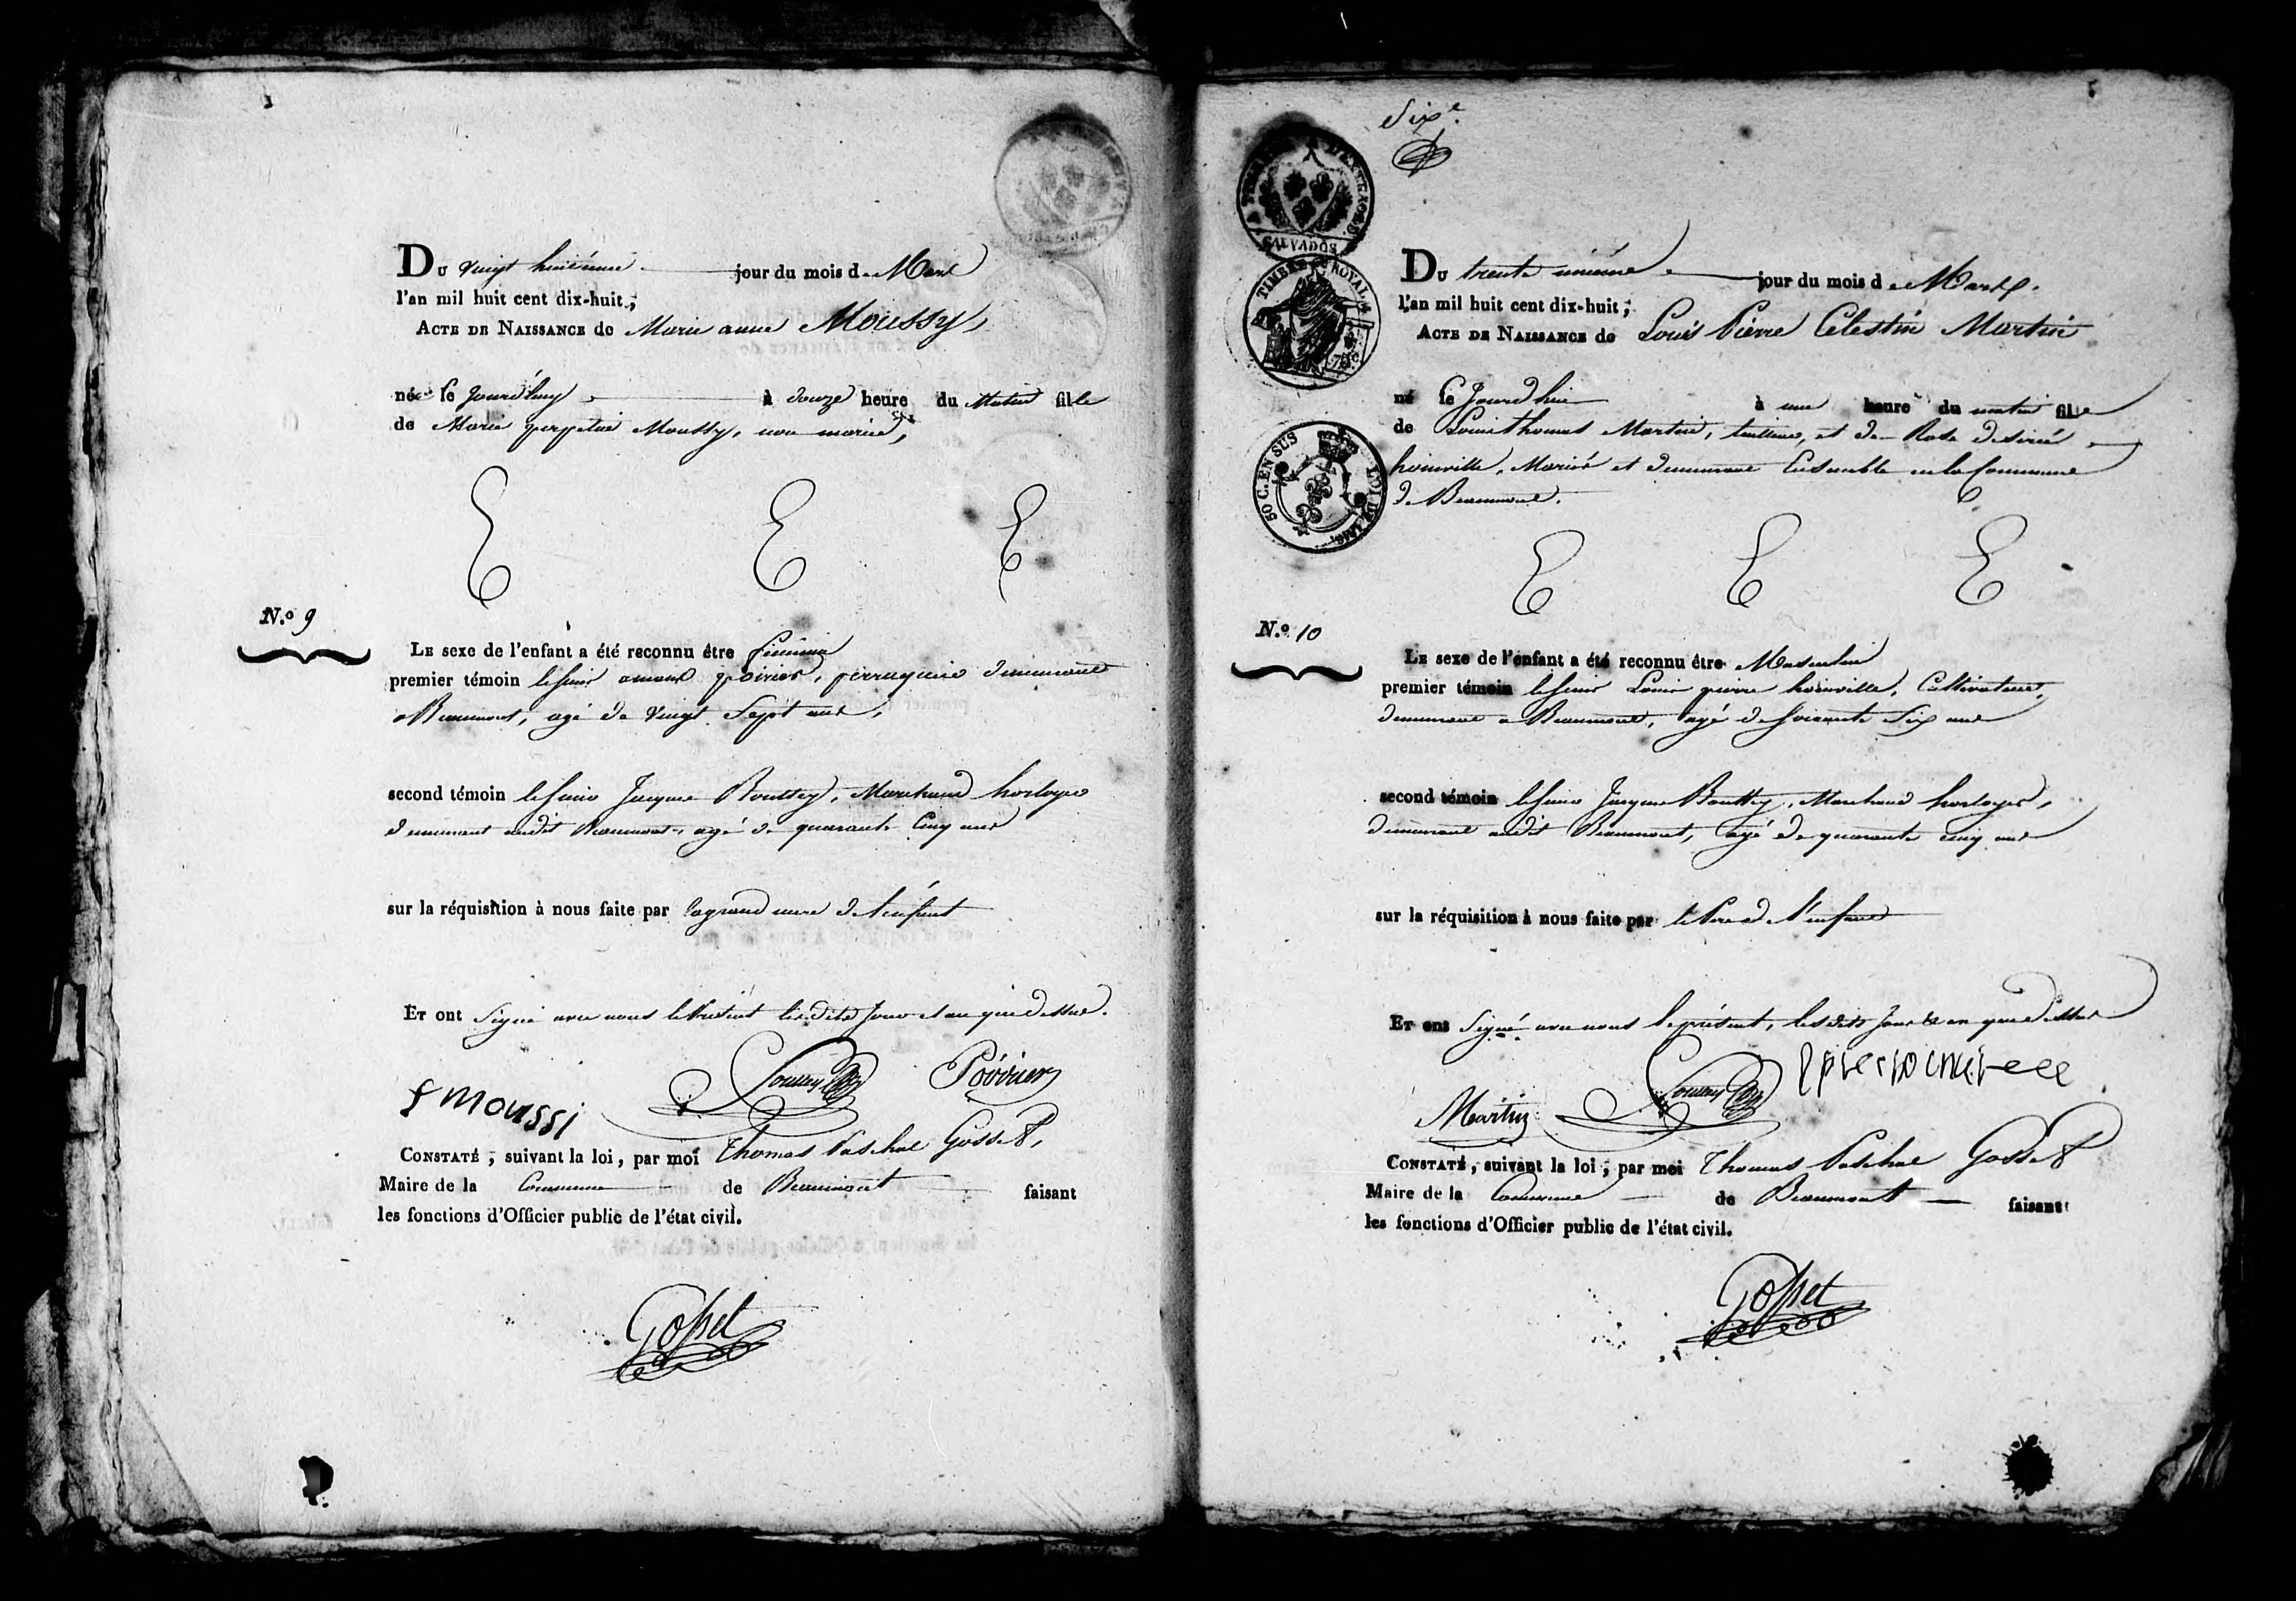 Du vingt huitième jour du mois de Mars
l'an mil huit cent dix-huit;
ACTE DE NAISSANCE de Marie anne Moussy,
née le jourd'huy à douze heure du Matin fille
de Marie perpetue Moussy, non mariée,
N.o 9
LE sexe de l'enfant a été reconnu être féminin
premier témoin le sieur amand poirier, perruquier demeurant
a Beaumont, agé de vingt Sept ans,
second témoin le sieur Jacques Marchand horloger
demeurant audit Beaumont, agé de quarante Cinq ans
sur la réquisition à nous faite par la grand mere de l'enfant
ET ont signé avec nous le Présent lesdits Jour et an que dessus.
f moussi
Poirier
CONSTATÉ, suivant la loi, par moi Thomas Paschal Gosset,
Maire de la Commune de Beaumont faisant
les fonctions d'Officier public de l'état civil.
Gosset
Six.e
CALVADOS
TIMBRE ROYAL
50 C. EN SUS
LOI DE 1816
Du trente unième jour du mois de Mars.
l'an mil huit cent dix-huit;
ACTE DE NAISSANCE de Louis Pierre Célestin Martin
né le Jourd'hui à une heure du matin fils
de Louis thomas Martin, tailleur, et de Rose desirée
hoinville, Mariés et demeurant Ensemble en la Commune
de Beaumont.
N.o 10
LE sexe de l'enfant a été reconnu être Masculin
premier témoin le sieur Louis pierre hoinville, Cultivateur,
demeurant a Beaumont, agé de Soixante Six ans
second témoin le sieur Jacques Marchand horloger,
demeurant audit Beaumont, agé de quarante cinq ans
sur la réquisition à nous faite par le Pere de l'enfant
ET ont Signé avec nous le présent, lesdits Jour & an que dessus
Martin
CONSTATÉ, suivant la loi, par moi Thomas Paschal Gosset
Maire de la Commune de Beaumont faisant
les fonctions d'Officier public de l'état civil.
Gosset